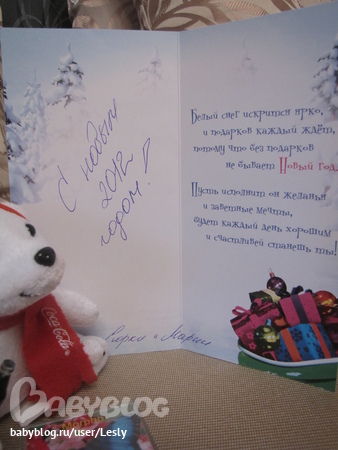 С новым
2012
годом!
Белый снег искрится ярко,
и подарков каждый ждёт,
потому что без подарков
не бывает Новый Год.
Пусть исполнит он желанья
и заветные мечты,
будет каждый день хорошим
и счастливей станешь ты!
и Мария
Coca-Cola
BABYBLOG
babyblog.ru/user/Lesly